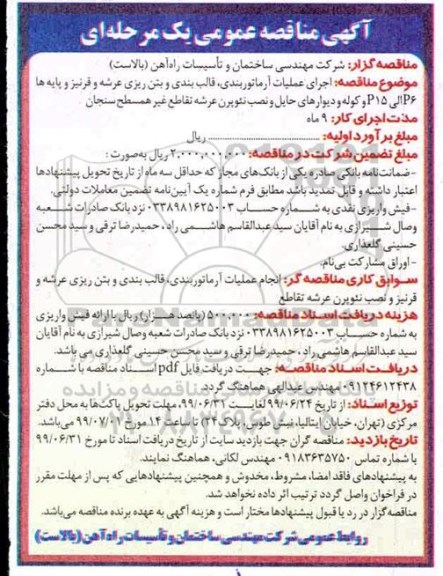 آگهی مناقصه عمومی یک مرحله‌ای
مناقصه‌گزار: شرکت مهندسی ساختمان و تأسیسات راه‌آهن (بالاست)
موضوع مناقصه: اجرای عملیات آرماتوربندی، قالب بندی و بتن ریزی عرشه و قرنیز و پایه ها
P۶ الی P۱۵ و کوله و دیوارهای حایل و نصب نئوپرن عرشه تقاطع غیر همسطح سنجان
مدت اجرای کار: ۹ ماه
مبلغ برآورد اولیه: ........................ ریال
مبلغ تضمین شرکت در مناقصه: ۲,۰۰۰,۰۰۰,۰۰۰ ریال به‌صورت:
- ضمانت‌نامه بانکی صادره یکی از بانک‌های مجاز که حداقل سه ماه از تاریخ تحویل پیشنهادها
اعتبار داشته و قابل تمدید باشد مطابق فرم شماره یک آیین‌نامه تضمین معاملات دولتی.
- فیش واریزی نقدی به شماره حساب ۰۳۳۸۹۸۱۶۲۵۰۰۳ نزد بانک صادرات شعبه
وصال شیرازی به نام آقایان سید عبدالقاسم هاشمی راد، حمیدرضا ترقی و سید محسن
حسینی گلعذاری.
- اوراق مشارکت بی‌نام.
سوابق کاری مناقصه گر: انجام عملیات آرماتوربندی، قالب بندی و بتن ریزی عرشه و
قرنیز و نصب نئوپرن عرشه تقاطع
هزینه دریافت اسناد مناقصه: ۵۰۰,۰۰۰ (پانصد هزار) ریال با ارائه فیش واریزی
به شماره حساب ۰۳۳۸۹۸۱۶۲۵۰۰۳ نزد بانک صادرات شعبه وصال شیرازی به نام آقایان
سید عبدالقاسم هاشمی راد، حمیدرضا ترقی و سید محسن حسینی گلعذاری می باشد.
دریافت اسناد مناقصه: جهت دریافت فایل pdf اسناد مناقصه با شماره
۰۹۱۲۴۶۱۲۴۳۸ مهندس عبدالهی هماهنگ گردد.
توزیع اسناد: از تاریخ ۹۹/۰۶/۲۴ لغایت ۹۹/۰۶/۳۱، مهلت تحویل پاکت‌ها به محل دفتر
مرکزی (تهران، خیابان ایتالیا، نبش طوس، پلاک ۲۴) تا ساعت ۱۴ مورخ ۹۹/۰۷/۱۲ می‌باشد.
تاریخ بازدید: مناقصه گران جهت بازدید سایت از تاریخ دریافت اسناد تا مورخ ۹۹/۰۶/۳۱
با شماره تماس ۰۹۱۸۳۶۳۵۷۵۰ مهندس لکانی، هماهنگ نمایند.
به پیشنهادهای فاقد امضا، مشروط، مخدوش و همچنین پیشنهادهایی که پس از مهلت مقرر
در فراخوان واصل گردد ترتیب اثر داده نخواهد شد.
مناقصه‌گزار در رد یا قبول پیشنهادها مختار است و هزینه آگهی به عهده برنده مناقصه می‌باشد.
روابط عمومی شرکت مهندسی ساختمان و تأسیسات راه آهن (بالاست)